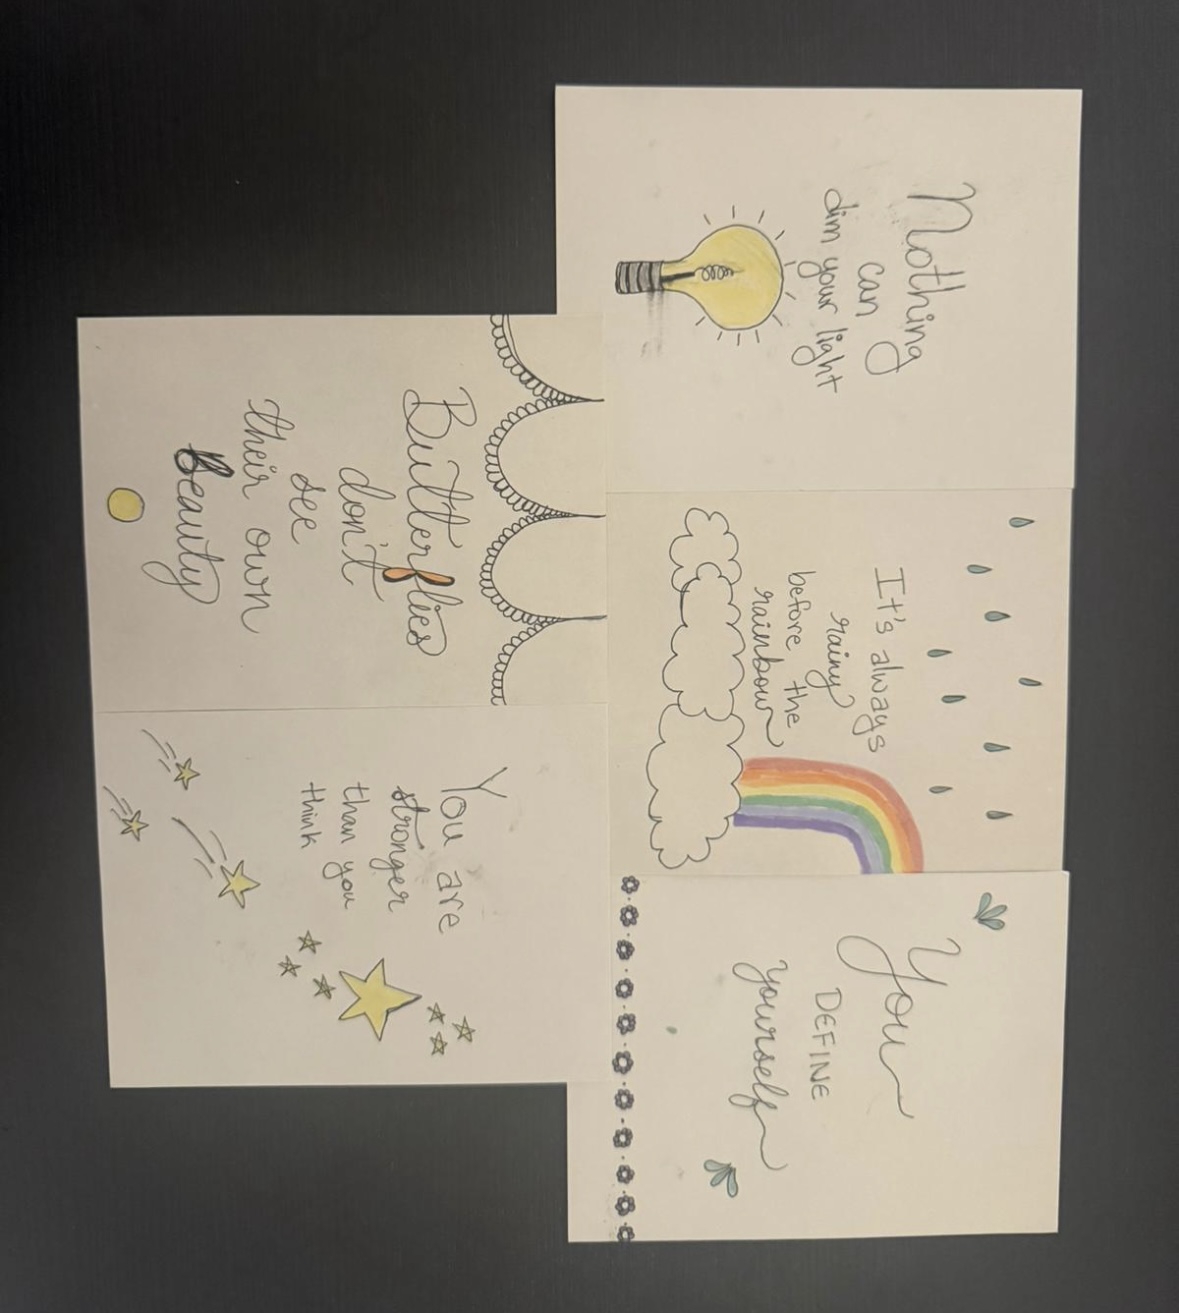 Nothing
can
dim your light
It's always
rainy
before the
rainbow
You
DEFINE
yourself
Butterflies
don't
see
their own
Beauty
You are
stronger
than you
think